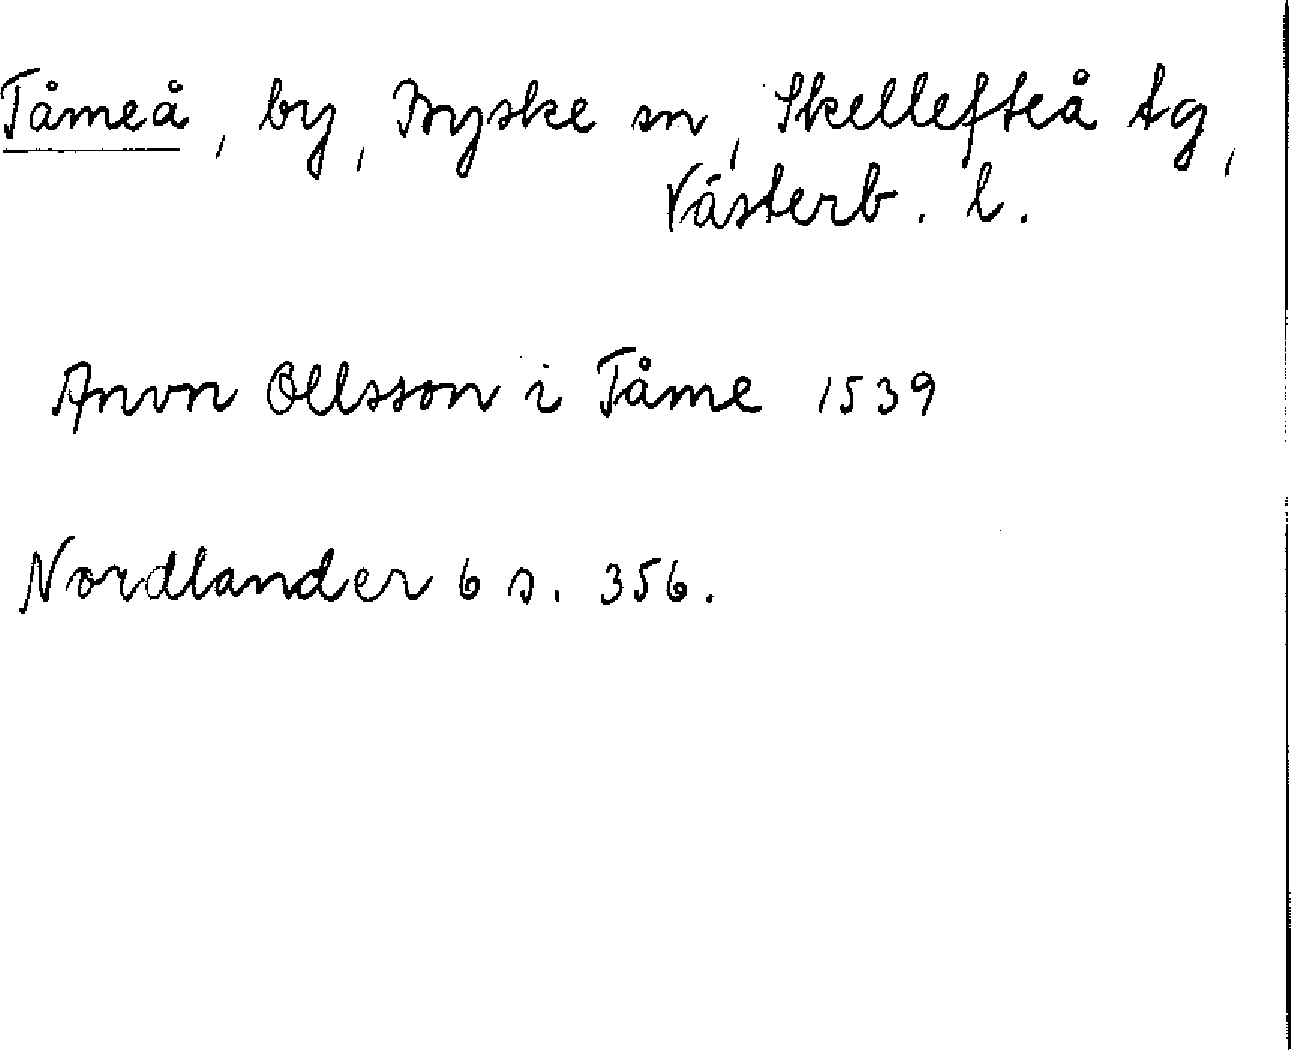 Tåmeå, by, Byske sn, Skellefteå tg,
Västerb. l.
Anvn Ollsson i Tåme 1539
Nordlander 6 s. 356.